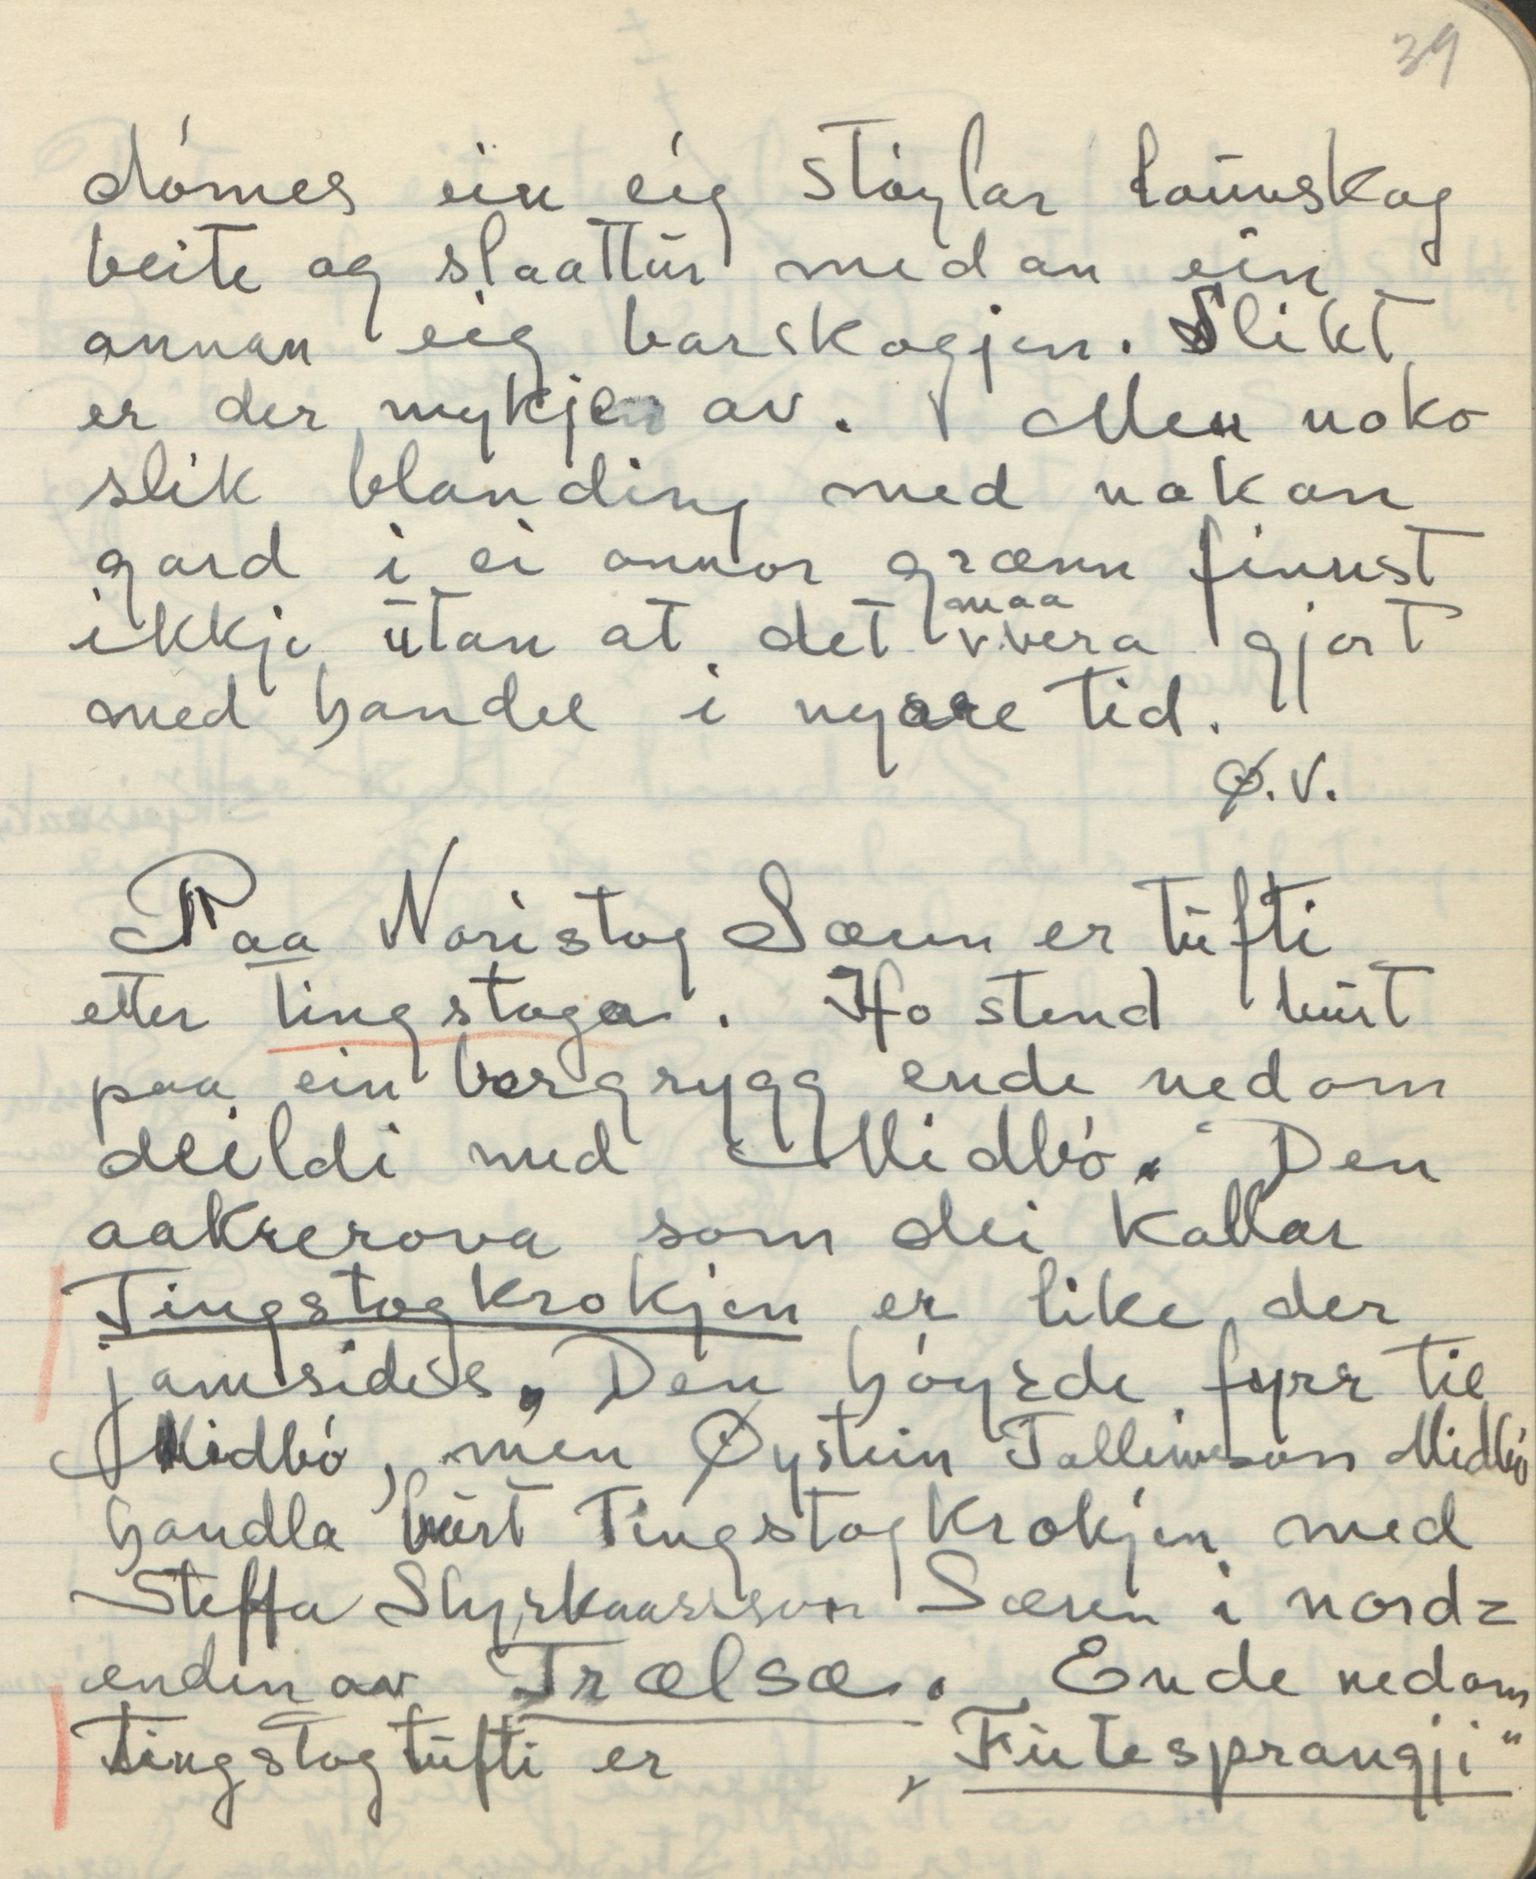 39
dómes ein eig stóylar launskog
beite og slaattur medan ein
annan eig barskogjen. Slikt
er der mykje av. Men noko
slik blanding med nokon
gard i ei annor grænn finnst
ikkje utan at det maa vera gjort
med handel i nyare tid.
Ø.V.
Paa Noristog Sæm er tufti
etter tingstoga. Ho stend burt
paa ein bergrygg ende nedom
deildi med Midbó. Den
aakrerova som dei kallar
Tingstogkrokjen er like der
jamsides. Den hóyrde fyrr til
Midbó, men Øystein Talleivson Midbó
handla burt Tingstogkrokjen med
Steffa Styrkaarsson Sæm i nord=
enden av Trælsæ. Ende nedom
tingstogtufti er „Futesprangji"